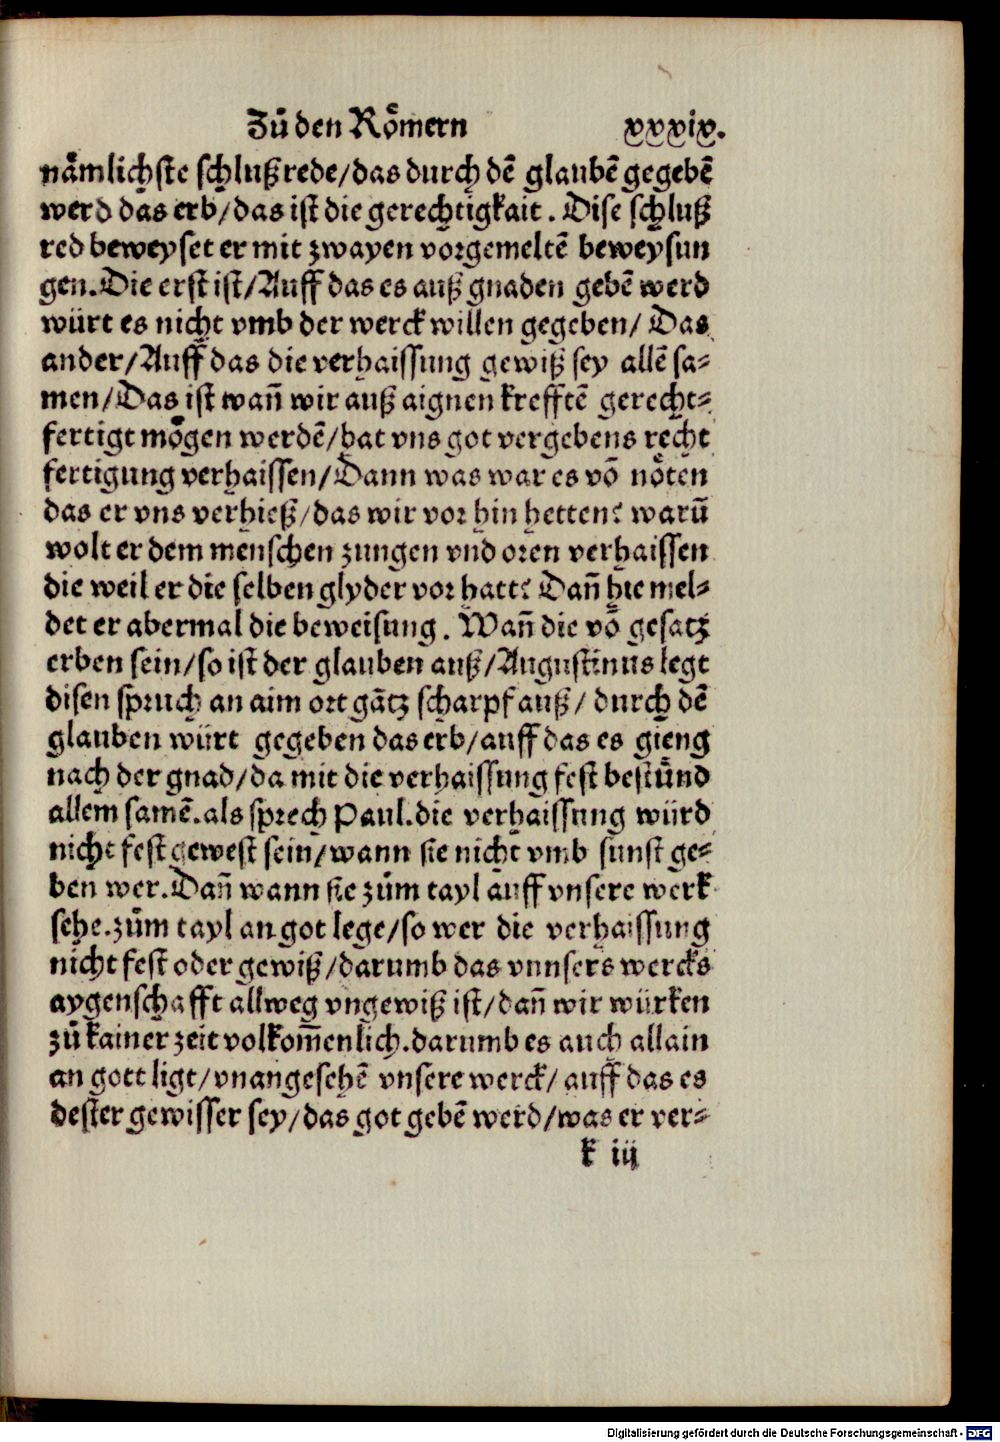 Zů den Roͤmern xxxix.
naͤmlichste schlußrede/das durch dē glaubē gegebē
werd das erb/das ist die gerechtigkait. Dise schluß
red beweyset er mit zwayen vorgemeltē beweysun
gen. Die erst ist/Auff das es auß gnaden gebē werd
würt es nicht vmb der werck willen gegeben/ Das
ander/Auff das die verhaissung gewiß sey allē sa⸗
men/Das ist wañ wir auß aignen krefftē gerecht⸗
fertigt moͤgen werdē/hat vns got vergebens recht
fertigung verhaissen/Dann was war es vō noͤten
das er vns verhieß/das wir vor hin hetten? warū
wolt er dem menschen zungen vnd oren verhaissen
die weil er die selben glyder vor hatt? Dañ hie mel⸗
det er abermal die beweisung. Wañ die vō gesatz
erben sein/so ist der glauben auß/Augustinus legt
disen spruch an aim ort gātz scharpf auß/ durch dē
glauben würt gegeben das erb/auff das es gieng
nach der gnad/da mit die verhaissung fest bestünd
allem samē. als sprech Paul. die verhaissung würd
nicht fest gewest sein/wann sie nicht vmb sunst ge⸗
ben wer. Dañ wann sie zům tayl auff vnsere werk
sehe. zům tayl an got lege/so wer die verhaissung
nicht fest oder gewiß/darumb das vnnsers wercks
aygenschafft allweg vngewiß ist/dañ wir würken
zů kainer zeit volkom̄enlich. darumb es auch allain
an gott ligt/vnangesehē vnsere werck/auff das es
dester gewisser sey/das got gebē werd/was er ver⸗
k iij
Digitalisierung gefördert durch die Deutsche Forschungsgemeinschaft - DFG